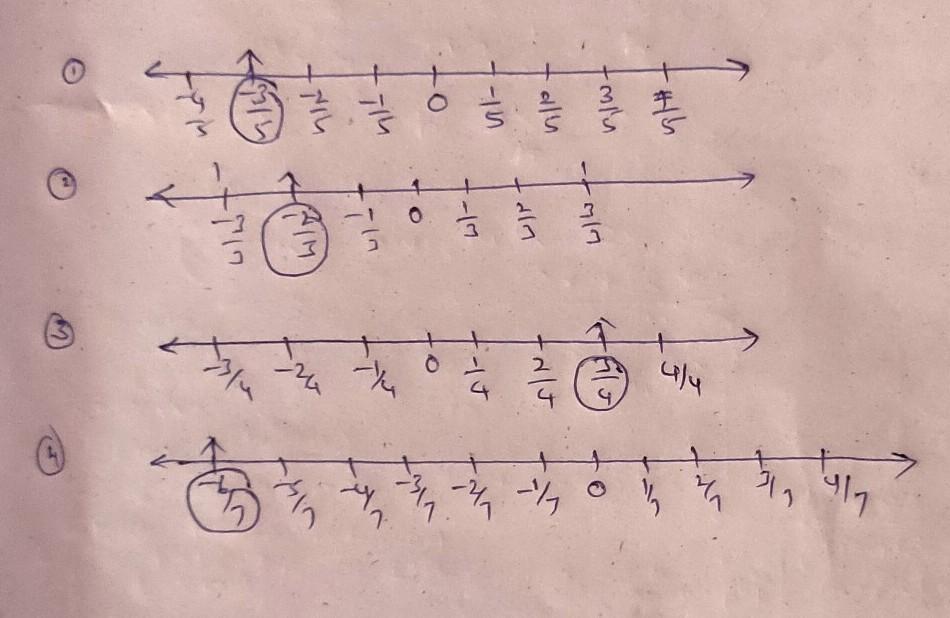 ① -4/5 -3/5 -2/5 -1/5 0 1/5 2/5 3/5 4/5
② -3/3 -2/3 -1/3 0 1/3 2/3 3/3
③ -3/4 -2/4 -1/4 0 1/4 2/4 3/4 4/4
④ -6/7 -5/7 -4/7 -3/7 -2/7 -1/7 0 1/7 2/7 3/7 4/7